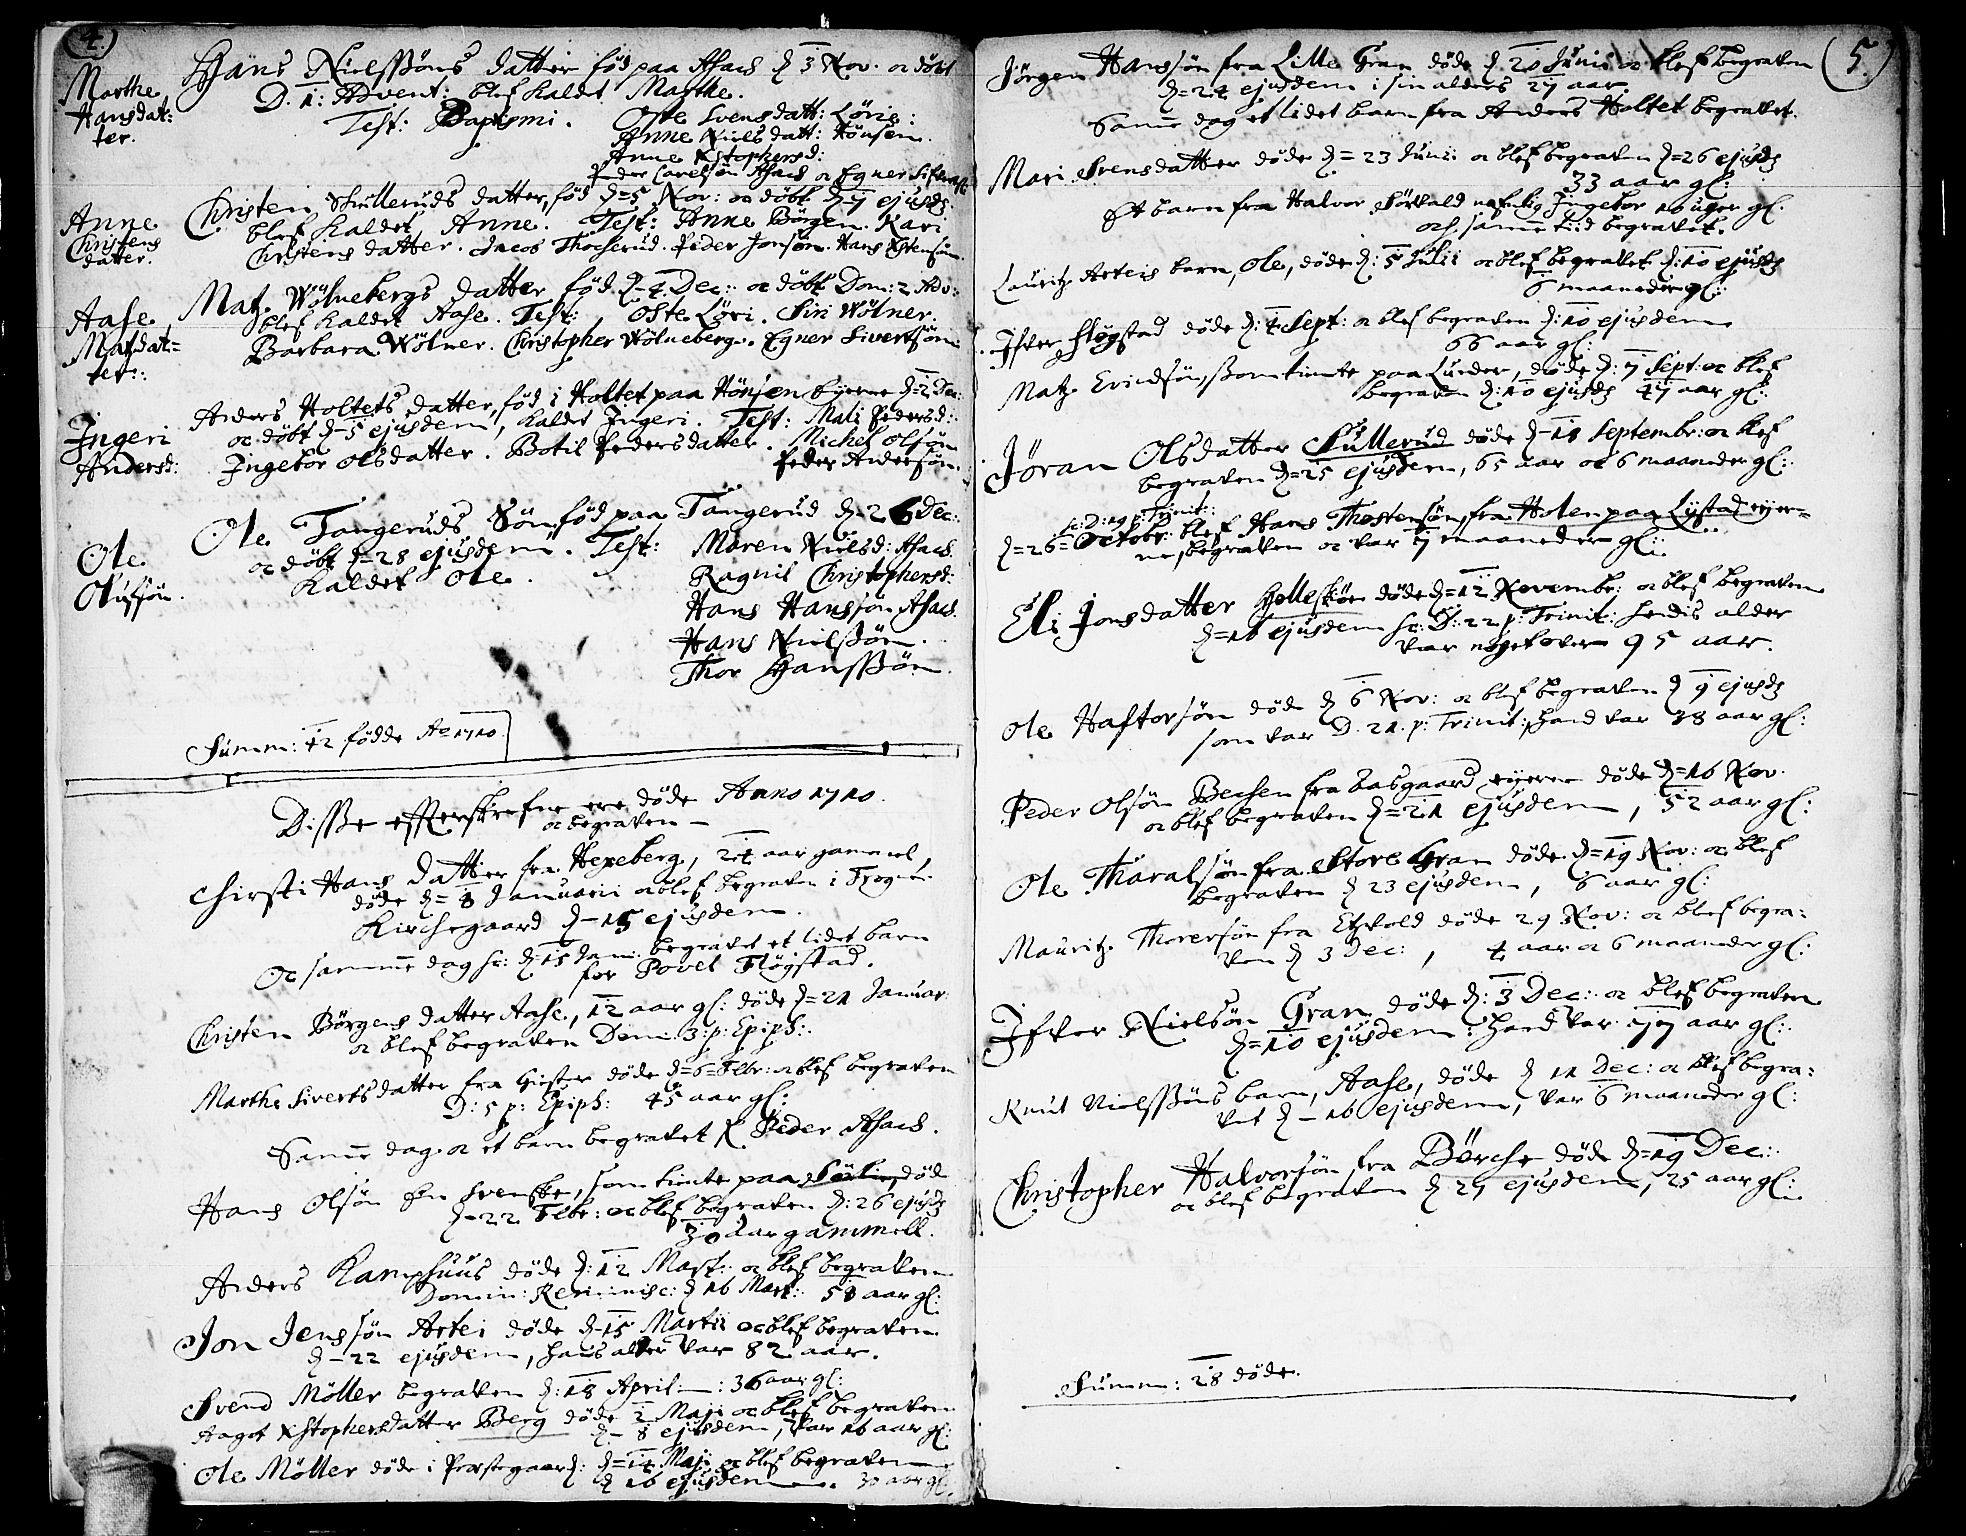 4.
Marthe
Hansdat:
ter.
Hans Nielssöns datter föd paa Asach d. 3 Nov. oc döbt
D. 1: Advent: blef kaldet Marthe.
Test: Baptismi. Oste Svensdatt: Lörie:
Anne Nielsdatt: Hönsen.
Anne Xstophersd:
Peder Carelsön Asach oc Egner Sifverss:
Anne
Christens
datter.
Christen Skulleruds datter, föd d=5 Nov: oc döbt d-7 ejusd:
blef kaldet Anne. Test: Anne Börgen. Kari
Christens datter. Jacob Thoeserud. Peder Jonsön. Hans Xstensön.
Aase
Matzdat=
ter:
Matz Wölnebergs datter föd d-4 Dec: oc döbt Dom: 2 Adv:
blef kaldet Aase. Test: Oste Löri. Siri Wölner.
Barbara Wölner. Christopher Wölneberg. Egner Sivertsön
Ingeri
Andersd:
Anders Holtets datter, föd i Holtet paa Hönsen eyerne d=2 Dec:
oc döbt d-5 ejusdem, kaldet Ingeri. Test: Mali Pedersd:
Ingebor Olsdatter. Botil Pedersdatter. Michel Olsön
Peder Andersön.
Ole
Olufsön.
Ole Tangeruds Sön, föd paa Tangerud d-26 Dec:
oc döbt d-28 ejusdem. Test: Maren Nielsd: Asach.
Kaldet Ole. Ragnil Christophersd:
Hans Hanssön Asach.
Hans Nielssön.
Thor Hanssön
Summ: 12 födde Ao 1710.
Disse efterskrefne ere döde Anno 1710.
oc begraven
Chirsti Hans datter fra Hexeberg, 24 aar gammel,
döde d= 8 Januarii oc blef begraven i Frogner
Kirchegaard d-15 ejusdem.
Oc samme dag sc: d=15 Jan: begravet et lidet barn
for Povel Flögstad.
Christen Börgens datter Aase, 12 aar gl: döde d=21 Januar:
oc blef begraven Dom: 3: p: Epiph:
Marthe Sivertsdatter fra Gister döde d=6=Febr: oc blef begraven
D: 5 p: Epiph: 45 aar gl:
Samme dag oc et barn begravet f. Peder Asach.
Hans Olsön en Svenske, som tiente paa Sörlie, död
d-22 Febr: oc blef begraven d: 26 ejusd
30 aar gammell.
Anders Kamphuus döde d: 12 Mart: oc blef begraven
Domin: Reminisc: d 16 Mart: 58 aar gl:
Jon Jenssön Artei döde d-15 Martii oc blef begraven
d-22 ejusdem, hans alder var 82 aar.
Svend Möller begraven d: 18 April: 36 aar gl:
Aagot Xstophersdatter Berg döde 2 Maji oc blef begraven
d- 8 ejusdem, var 16 aar gl:
Ole Möller döde i Præstegaard: d=14 Maji oc blef begraven
d 16 ejusdem. 30 aar gl:
(5.)
Jörgen Hanssön fra Lille Gran döde d. 20 Junii oc blef begraven
d=24 ejusdem i sin alders 27 aar.
Samme dag et lidet barn fra Anders Holtet begravet.
Mari Svensdatter döde d= 23 Juni: oc blef begraven d=26 ejusd
33 aar gl:
Et barn fra Halvor Sörvald nafnlig Ingebor 10 uger gl:
och samme tiid begravet.
Lauritz Arteis barn, Ole, döde d: 5 Julii oc blef begravet d: 10 ejusd
6 maaneder gl:
Ifver Flögstad döde d: 4 Sept: oc blef begraven d: 10 ejusdem
66 aar gl:
Matz Erichsön, som tiente paa Lurder, döde d: 7 Sept: oc blef
begraven d: 10 ejusd 47 aar gl:
Jöran Olsdatter Sullerud döde d-18 Septembr: oc blef
begraven d=25 ejusdem, 65 aar oc 6 maaneder gl:
sc: D: 19 p: Trinit:
d=26= Octobr: blef Hans Thostensön, fra Holen paa Lystad eyer=
ne, begraven oc var 7 maaneder gl:
Eli Jonsdatter Helleskoe döde d=12 Novembr: oc blef begraven
d=16 ejusdem sc: D: 22 p: Trinit: hendis alder
var noget over 95 aar.
Ole Haftorsön döde d 6 Nov: oc blef begraven d 9 ejusd
som var D. 21. p: Trinit: hand var 38 aar gl:
Peder Olsön Bechen fra basgaard eyerne döde d=16 Nov.
oc blef begraven d=21 ejusdem, 52 aar gl:
Ole Tharalsön fra Store Gran döde d=19 Nov: oc blef
begraven d 23 ejusdem, 6 aar gl:
Mauritz Thorersön fra Etzvold döde 29 Nov: oc blef begra:
ven d 3 Dec:, 4 aar oc 6 maaneder gl:
Ifver Nielsön Gran döde d: 3 Dec: oc blef begraven
d=10 ejusdem: hand var 77 aar gl:
Knut Nielssöns barn, Aase, döde d 11 Dec: oc blef begra:
vet d - 16 ejusdem, var 6 maaneder gl:
Christopher Halvorsön fra Börche döde d=19 Dec:
oc blef begraven d 27 ejusdem, 25 aar gl:
Summ: 28 döde.